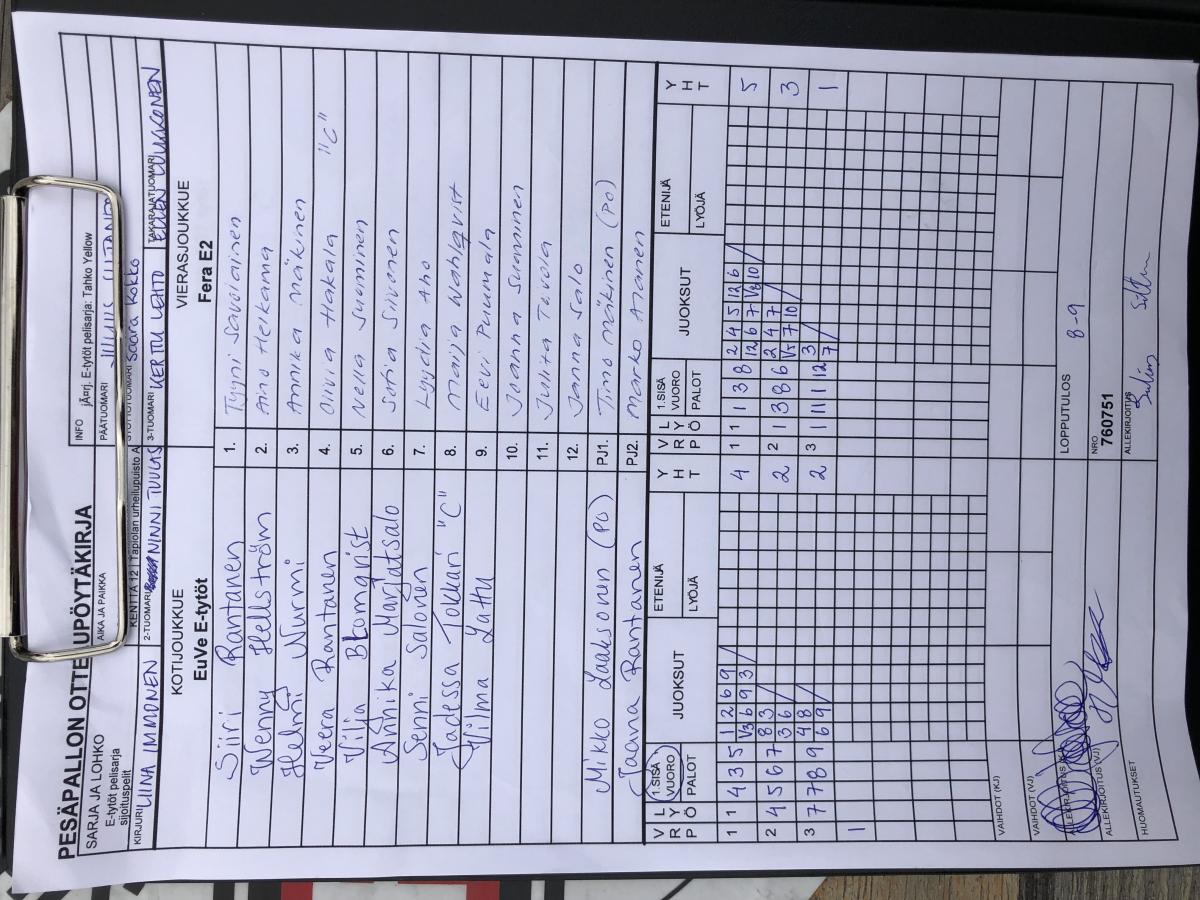 PESÄPALLON OTTELUPÖYTÄKIRJA
SARJA JA LOHKO
E-tytöt pelisarja
sijoituspelit
AIKA JA PAIKKA
KENTTÄ 12 | Tapiolan urheilupuisto A
INFO
jÃ¤rj. E-tytöt pelisarja: Tahko Yellow
PÄÄTUOMARI
Saara Kokko
KIRJURI LIINA IMMONEN
2-TUOMARI NINNI TUULAS
3-TUOMARI KERTTU LEHTO
TAKARAJATUOMARI
KOTIJOUKKUE
EuVe E-tytöt
VIERASJOUKKUE
Fera E2
Siiri Rantanen 1. Tyyni Savolainen
Wenny Hellström 2. Aino Helkama
Helmi Nurmi 3. Annika Mäkinen
Veera Rantanen 4. Olivia Hakala "C"
Vilja Blomqvist 5. Nella Suominen
Annika Marjatsalo 6. Sofia Siivonen
Senni Salonen 7. Lyydia Aho
Jadessa Tokkari "C" 8. Maija Wahlqvist
Hilma Lattu 9. Eevi Puumala
10. Joanna Summinen
11. Julita Tuvola
12. Janna Salo
Mikko Laaksonen (PO) PJ1. Timo Mäkinen (PO)
Jaana Rantanen PJ2. Marko Ahanen
V R P L Y Ö 1.SISÄ VUORO PALOT JUOKSUT ETENIJÄ LYÖJÄ Y H T V R P L Y Ö 1.SISÄ VUORO PALOT JUOKSUT ETENIJÄ LYÖJÄ Y H T
1 1 4 3 5 1 2 6 9 4 1 1 1 3 8 2 4 5 12 6 5
V3 6 9 3 12 6 7 V8 10
2 4 5 6 7 8 3 2 2 1 3 8 6 2 4 7 3
3 6 V5 7 10
3 7 7 8 9 4 8 2 3 1 11 1 12 3 1
6 9 7
1
VAIHDOT (KJ)
VAIHDOT (VJ)
LOPPUTULOS 8-9
ALLEKIRJOITUS (KJ)
NRO
760751
ALLEKIRJOITUS (VJ)
ALLEKIRJOITUS
HUOMAUTUKSET